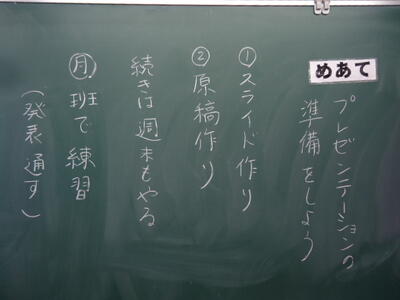 めあて
プレゼンテーションの
準備をしよう
①スライド作り
②原稿作り
続きは週末もやる
㊊班で練習
(発表通す)